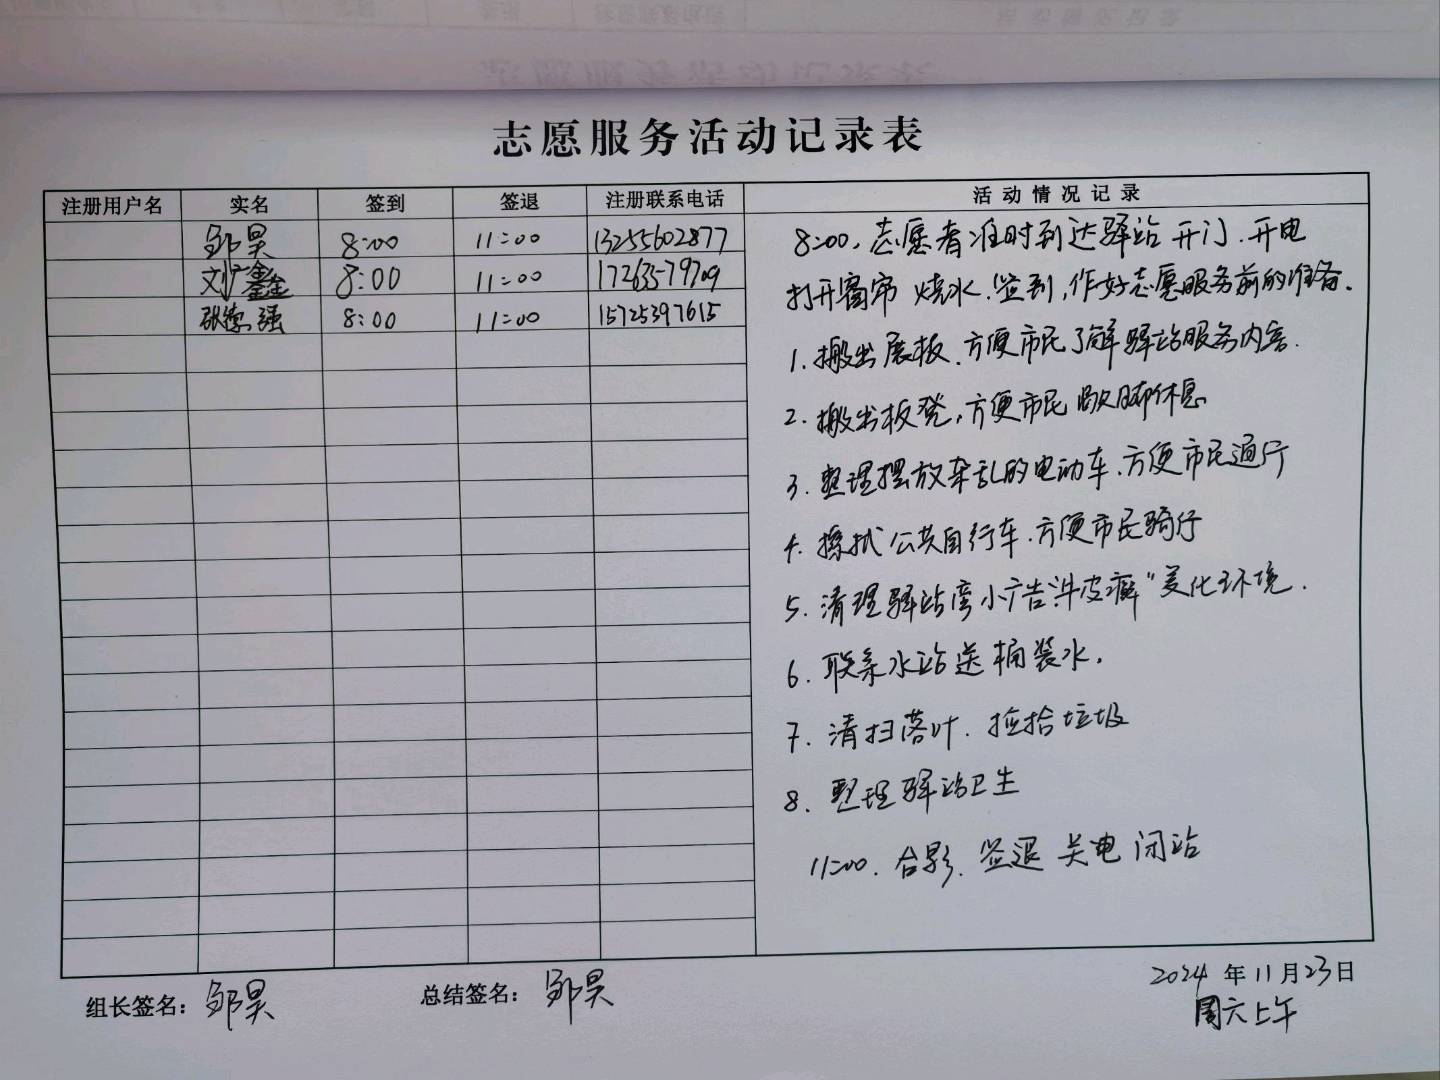 志愿服务活动记录表
注册用户名 实名 签到 签退 注册联系电话 活动情况记录
邹昊 8:00 11:00 13255602877
刘广鑫 8:00 11:00 17263579709
张德强 8:00 11:00 15725397615
8:00,志愿者准时到达驿站开门.开电
打开窗帘 烧水.签到,作好志愿服务前的准备.
1.搬出展板.方便市民了解驿站服务内容.
2.搬出板凳,方便市民歇脚休息
3.整理摆放杂乱的电动车.方便市民通行
4.擦拭公共自行车.方便市民骑行
5.清理驿站旁小广告"牛皮癣"美化环境.
6.联系水站送桶装水.
7.清扫落叶.捡拾垃圾
8.整理驿站卫生
11:00.合影.签退 关电 闭站
组长签名:邹昊 总结签名:邹昊
2024年11月23日
周六上午